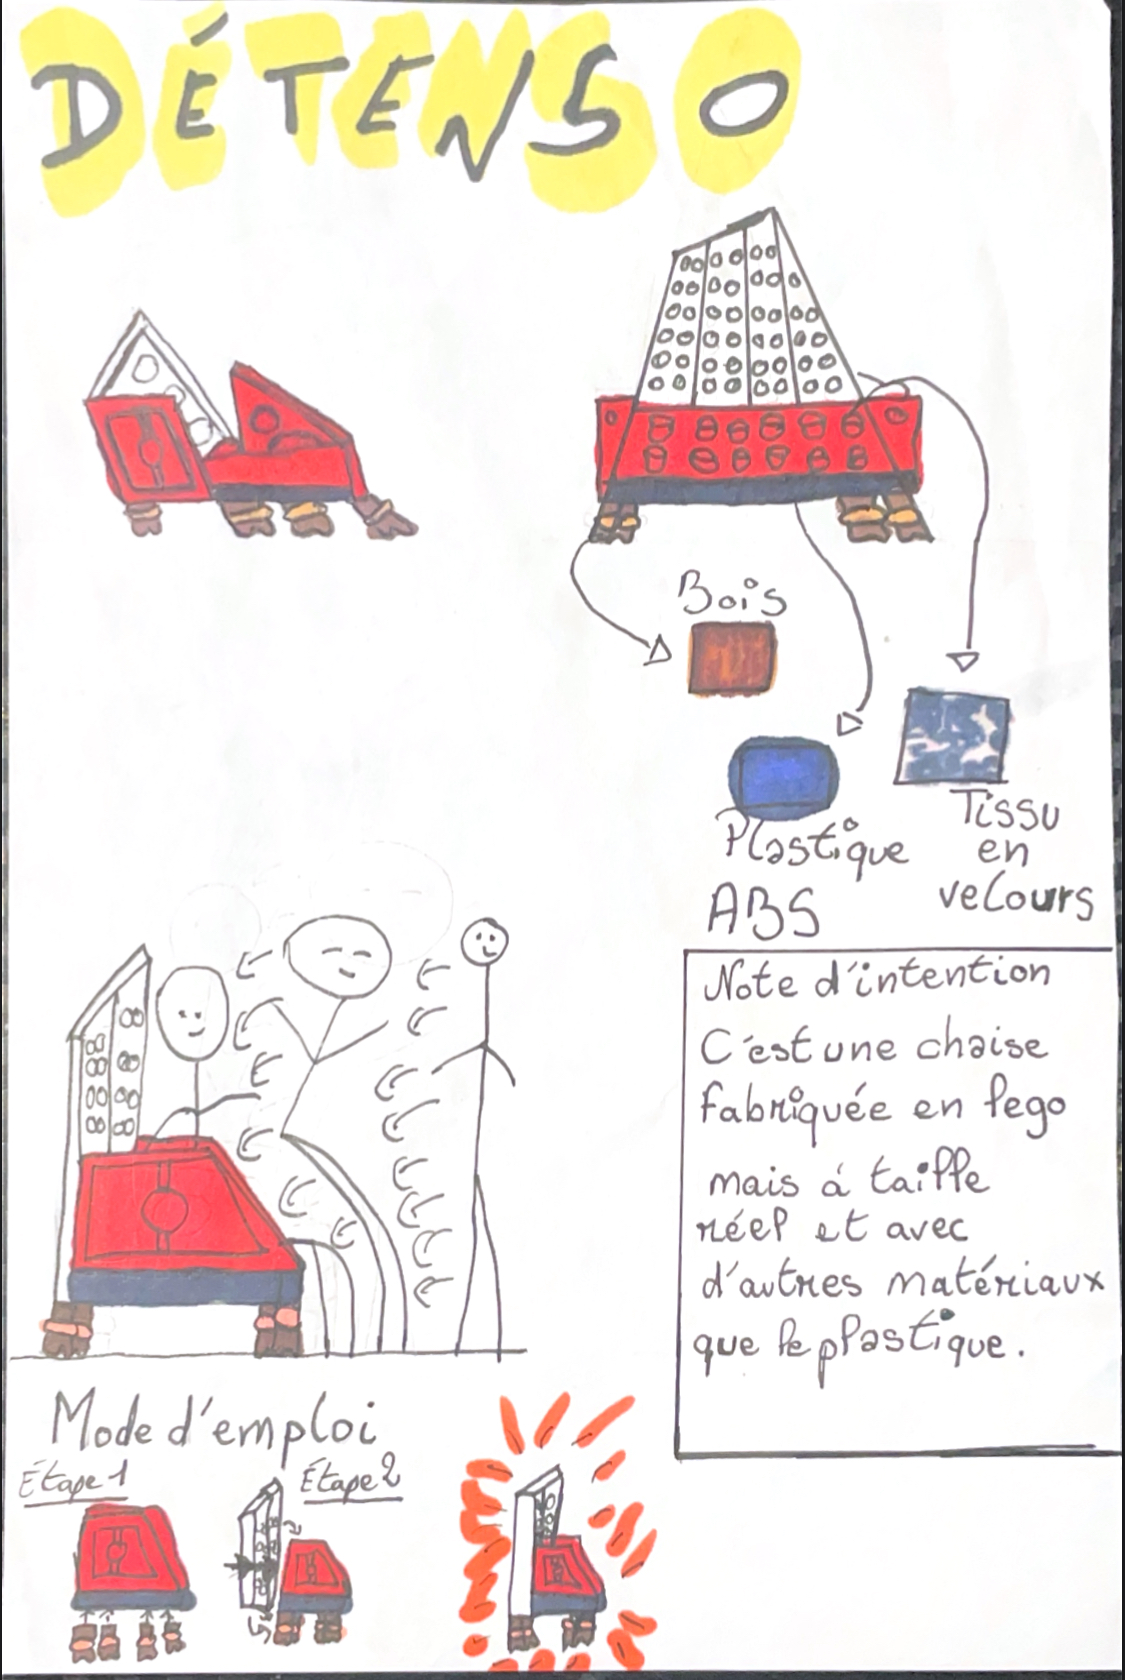 DÉTENSO
Bois
Plastique
ABS
Tissu
en
velours
Note d'intention
C'est une chaise
fabriquée en lego
mais à taille
réel et avec
d'autres matériaux
que le plastique.
Mode d'emploi
Étape 1
Étape 2